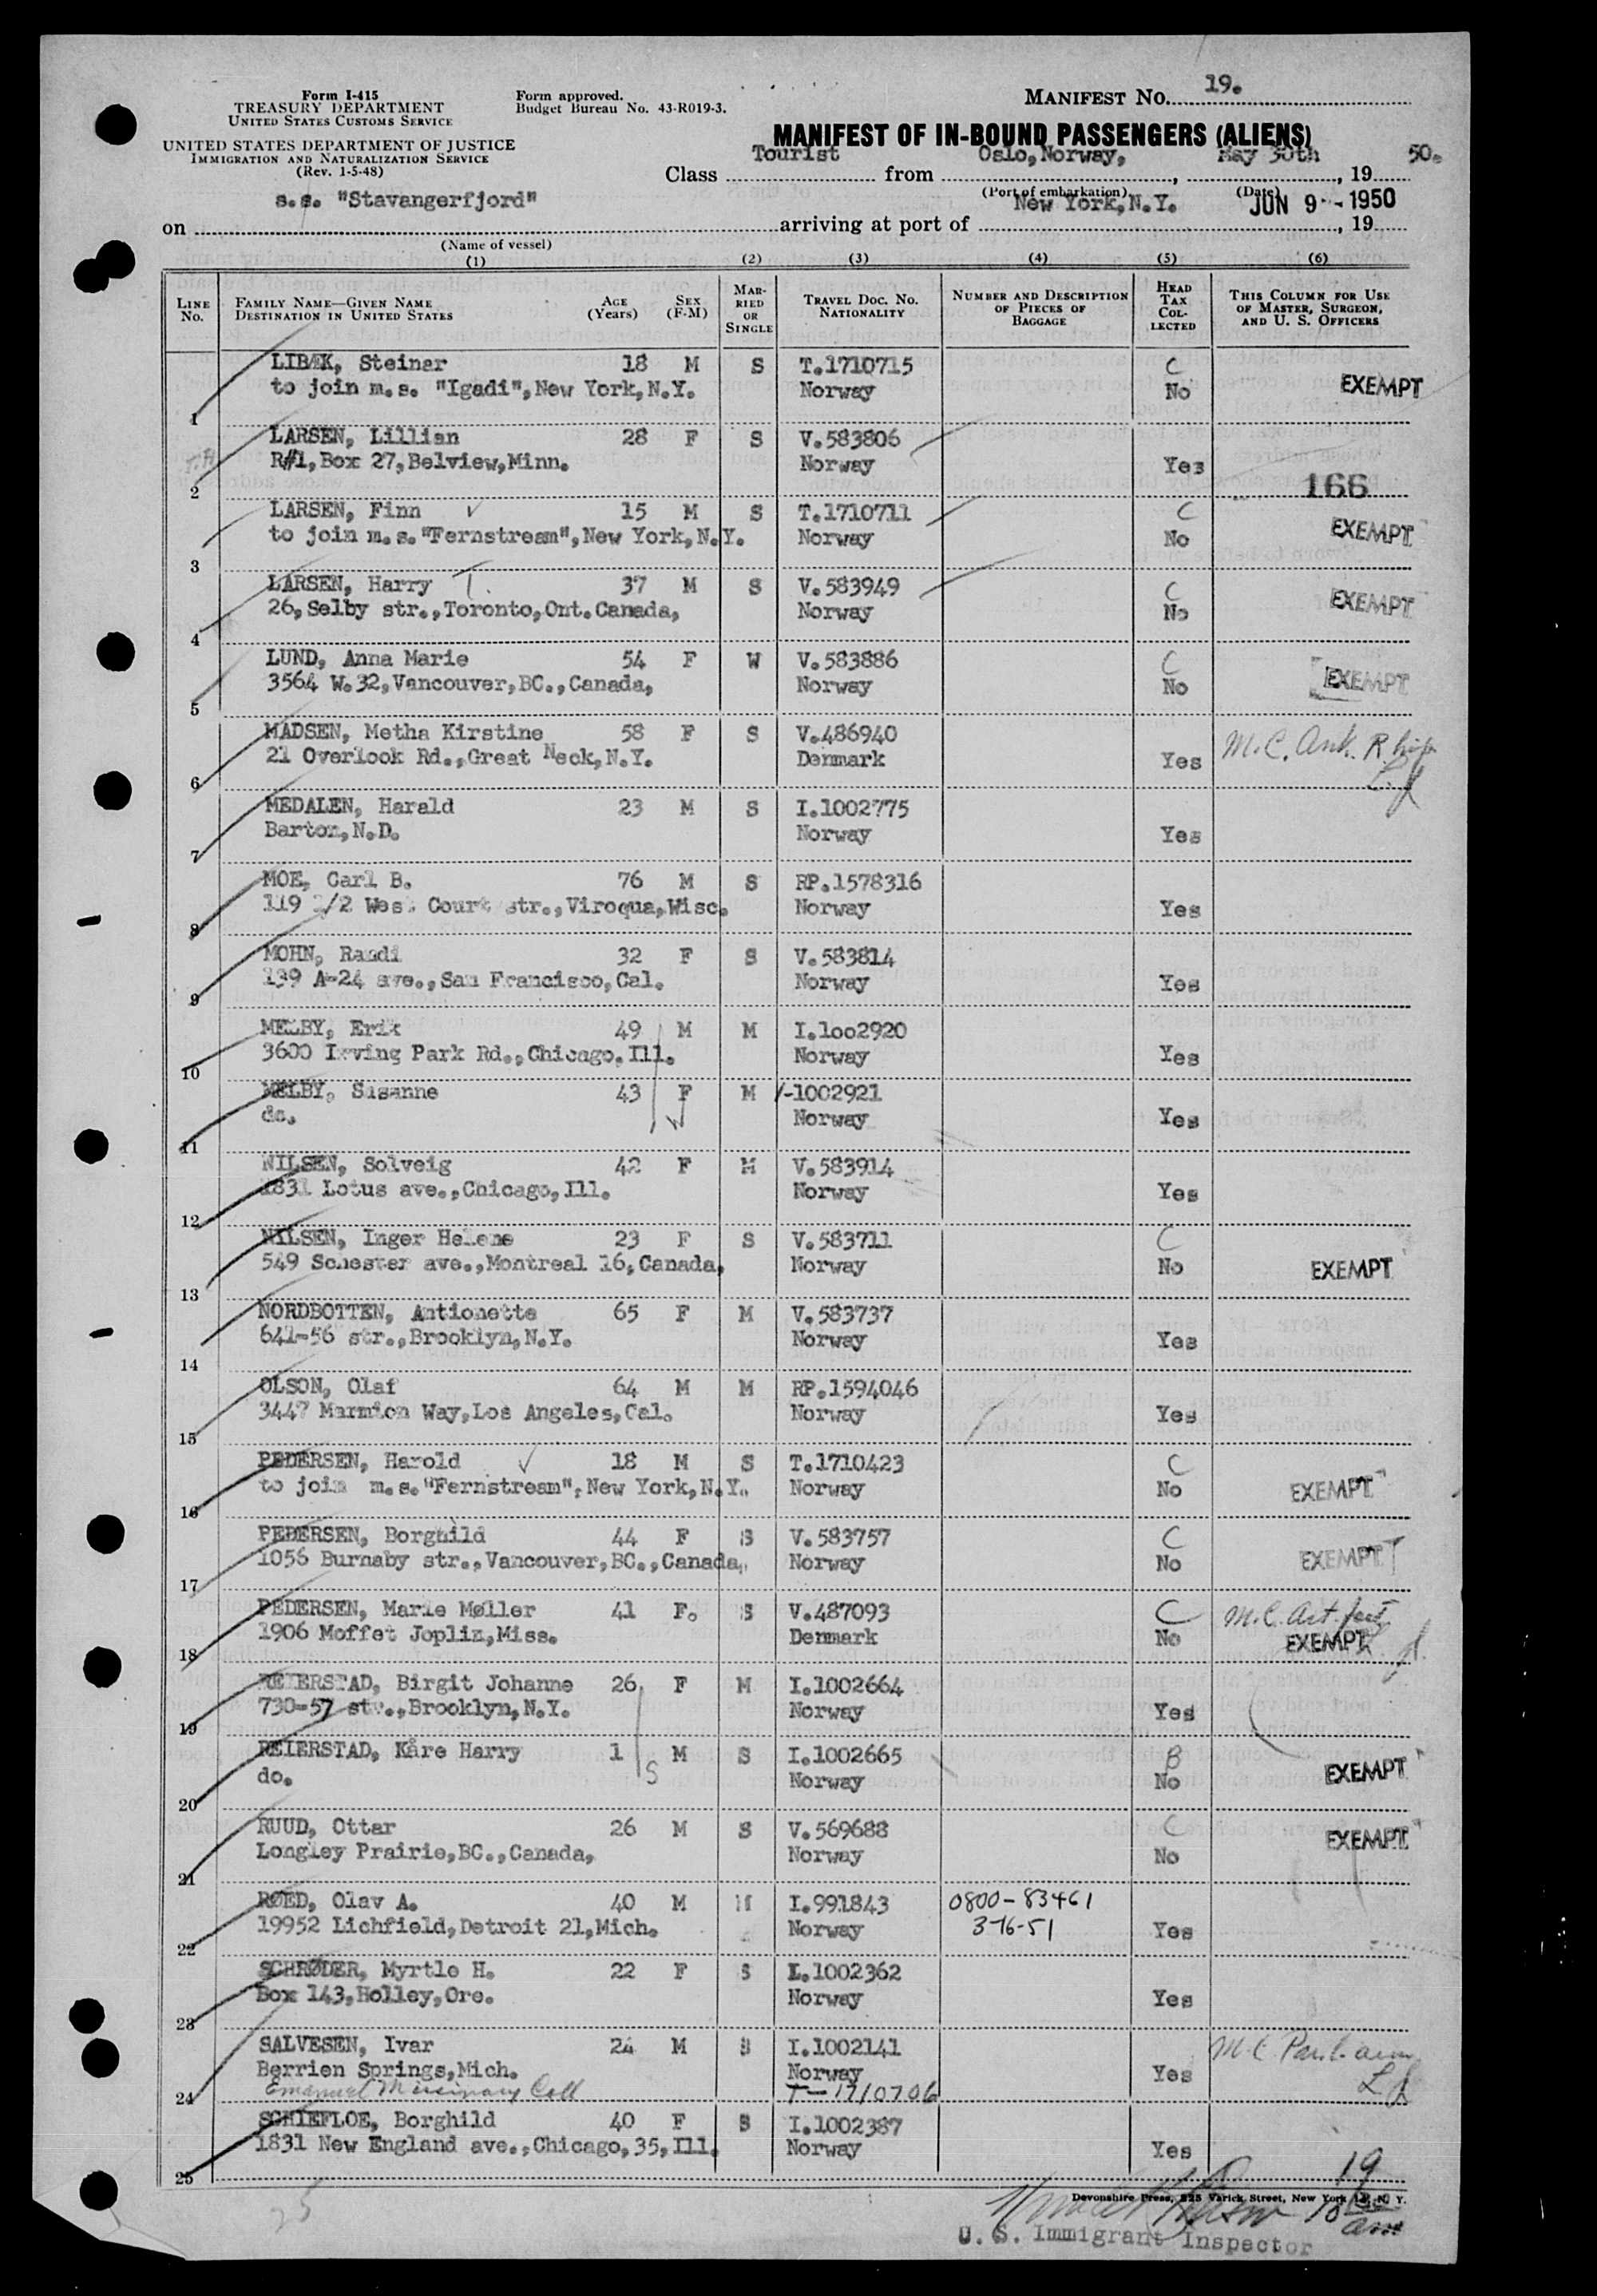 Form I-415
TREASURY DEPARTMENT
UNITED STATES CUSTOMS SERVICE
UNITED STATES DEPARTMENT OF JUSTICE
IMMIGRATION AND NATURALIZATION SERVICE
(Rev. 1-5-48)
Form approved.
Budget Bureau No. 43-R019-3.
MANIFEST NO. 19.
MANIFEST OF IN-BOUND PASSENGERS (ALIENS)
Class Tourist from Oslo, Norway, May 30th, 19 50.
(Port of embarkation) (Date)
on s.s. "Stavangerfjord" arriving at port of New York, N.Y. JUN 9 - 1950, 19
(Name of vessel)
(1) (2) (3) (4) (5) (6)
LINE No. FAMILY NAME—GIVEN NAME DESTINATION IN UNITED STATES AGE (Years) SEX (F-M) MARRIED OR SINGLE TRAVEL DOC. NO. NATIONALITY NUMBER AND DESCRIPTION OF PIECES OF BAGGAGE HEAD TAX COLLECTED THIS COLUMN FOR USE OF MASTER, SURGEON, AND U. S. OFFICERS
LIBÆK, Steinar 18 M S T.1710715 C
1 to join m.s. "Igadi", New York, N.Y. Norway No EXEMPT
LARSEN, Lillian 28 F S V.583806
2 R#1, Box 27, Belview, Minn. Norway Yes
166
LARSEN, Finn 15 M S T.1710711 C
3 to join m.s. "Fernstream", New York, N.Y. Norway No EXEMPT
LARSEN, Harry T. 37 M S V.583949 C
4 26, Selby str., Toronto, Ont. Canada, Norway No EXEMPT
LUND, Anna Marie 54 F W V.583886 C
5 3564 W. 32, Vancouver, BC., Canada, Norway No EXEMPT
MADSEN, Metha Kirstine 58 F S V.486940 M.C. Ank. R. hip
6 21 Overlook Rd., Great Neck, N.Y. Denmark Yes
MEDALEN, Harald 23 M S I.1002775
7 Barton, N.D. Norway Yes
MOE, Carl B. 76 M S RP.1578316
8 119 1/2 West Court str., Viroqua, Wisc. Norway Yes
MOHN, Randi 32 F S V.583814
9 139 A-24 ave., San Francisco, Cal. Norway Yes
MELBY, Erik 49 M M I.1oo2920
10 3600 Irving Park Rd., Chicago. Ill. Norway Yes
MELBY, Susanne 43 F M I-1002921
11 do. Norway Yes
NILSEN, Solveig 42 F M V.583914
12 1831 Lotus ave., Chicago, Ill. Norway Yes
NILSEN, Inger Helene 23 F S V.583711 C
13 549 Schester ave., Montreal 16, Canada, Norway No EXEMPT
NORDBOTTEN, Antionette 65 F M V.583737
14 641-56 str., Brooklyn, N.Y. Norway Yes
OLSON, Olaf 64 M M RP.1594046
15 3447 Marmion Way, Los Angeles, Cal. Norway Yes
PEDERSEN, Harold 18 M S T.1710423 C
16 to join m.s. "Fernstream", New York, N.Y. Norway No EXEMPT
PEDERSEN, Borghild 44 F S V.583757 C
17 1056 Burnaby str., Vancouver, BC., Canada, Norway No EXEMPT
PEDERSEN, Marie Møller 41 F. S V.487093 C M.C.
18 1906 Moffet Joplin, Miss. Denmark No EXEMPT
REIERSTAD, Birgit Johanne 26 F M I.1002664
19 730-57 str., Brooklyn, N.Y. Norway Yes
REIERSTAD, Kåre Harry 1 M S I.1002665 B
20 do. Norway No EXEMPT
RUUD, Ottar 26 M S V.569688 C
21 Longley Prairie, BC., Canada, Norway No EXEMPT
RØED, Olav A. 40 M M I.991843 0800-83461
22 19952 Lichfield, Detroit 21, Mich. Norway 3-16-51 Yes
SCHRØDER, Myrtle H. 22 F S I.1002362
23 Box 143, Holley, Ore. Norway Yes
SALVESEN, Ivar 24 M S I.1002141 M.C.
Berrien Springs, Mich. Norway Yes
24 Emanuel Missionary Coll T-1710706
SCHIEFLOE, Borghild 40 F S I.1002387
25 1831 New England ave., Chicago, 35, Ill. Norway Yes
19
Devonshire Press, 225 Varick Street, New York 14, N. Y.
25
10 am
U. S. Immigrant Inspector